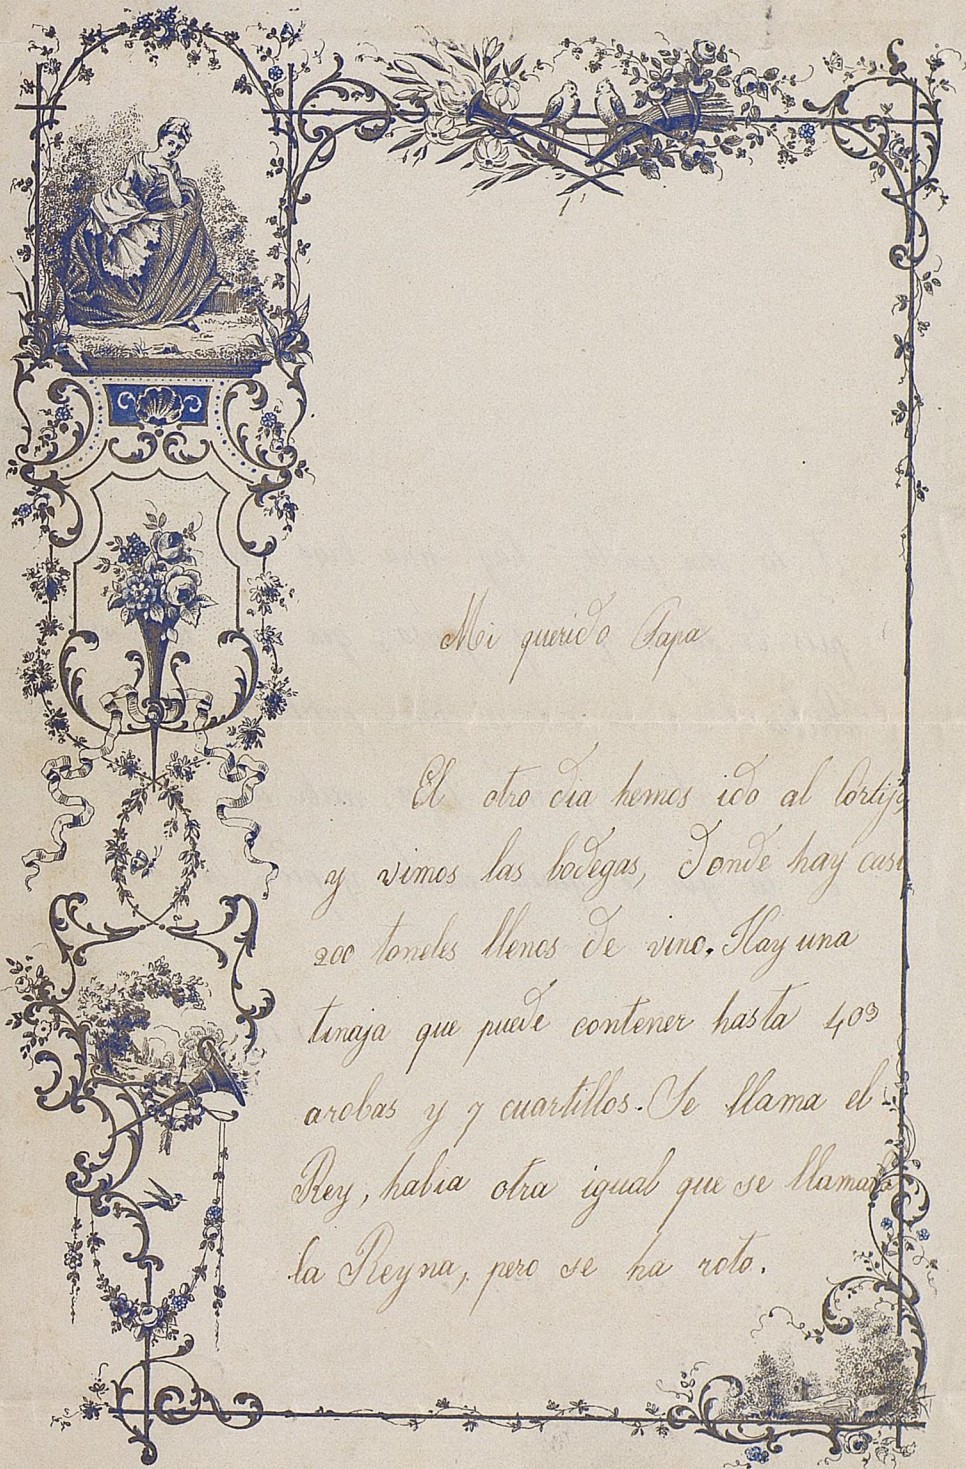 Mi querido Papa
El otro dia hemos ido al Cortijo
y vimos las bodegas, Donde hay casi
200 toneles llenos de vino. Hay una
tinaja que puede contener hasta 403
arobas y 7 cuartillos. Se llama el
Rey, habia otra igual que se llamaba
la Reyna, pero se ha roto.